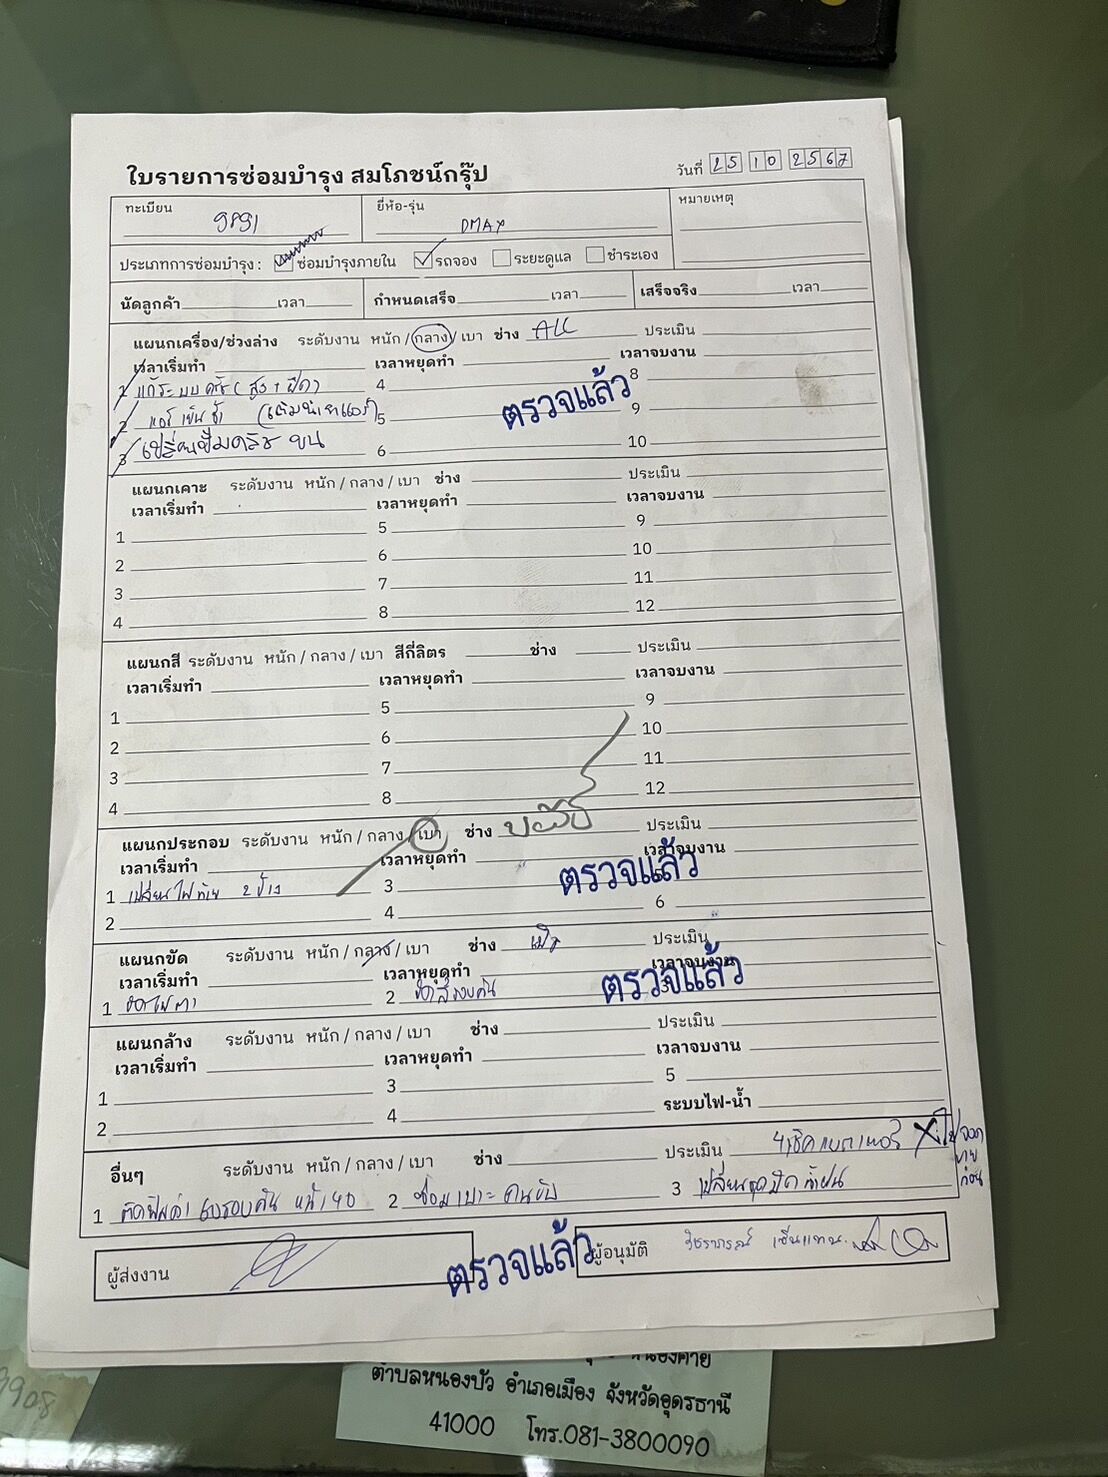 ใบรายการซ่อมบำรุง สมโภชน์กรุ๊ป
วันที่ 25 10 2567
ทะเบียน 9891 ยี่ห้อ-รุ่น DMAX หมายเหตุ
ประเภทการซ่อมบำรุง : ซ่อมบำรุงภายใน รถจอง ระยะดูแล ชำระเอง
นัดลูกค้า เวลา กำหนดเสร็จ เวลา เสร็จจริง เวลา
แผนกเครื่อง/ช่วงล่าง ระดับงาน หนัก / กลาง / เบา ช่าง ALL ประเมิน
เวลาเริ่มทำ เวลาหยุดทำ เวลาจบงาน
1 แก้ระบบครัช (สูง + ฝืด) 4 8
2 แอร์เย็นช้า (เติมน้ำยาแอร์) 5 9
3 เปลี่ยนปั๊มครัช บน 6 10
ตรวจแล้ว
แผนกเคาะ ระดับงาน หนัก / กลาง / เบา ช่าง ประเมิน
เวลาเริ่มทำ เวลาหยุดทำ เวลาจบงาน
1 5 9
2 6 10
3 7 11
4 8 12
แผนกสี ระดับงาน หนัก / กลาง / เบา สีกี่ลิตร ช่าง ประเมิน
เวลาเริ่มทำ เวลาหยุดทำ เวลาจบงาน
1 5 9
2 6 10
3 7 11
4 8 12
แผนกประกอบ ระดับงาน หนัก / กลาง / เบา ช่าง ประเมิน
เวลาเริ่มทำ เวลาหยุดทำ เวลาจบงาน
1 เปลี่ยนไฟท้าย 2 ข้าง 3
2 4 6
ตรวจแล้ว
แผนกขัด ระดับงาน หนัก / กลาง / เบา ช่าง ประเมิน
เวลาเริ่มทำ เวลาหยุดทำ เวลาจบงาน
1 ขัดไฟตา 2 ขัดสีรอบคัน 3
ตรวจแล้ว
แผนกล้าง ระดับงาน หนัก / กลาง / เบา ช่าง ประเมิน
เวลาเริ่มทำ เวลาหยุดทำ เวลาจบงาน
1 3 5
2 4 ระบบไฟ-น้ำ
อื่นๆ ระดับงาน หนัก / กลาง / เบา ช่าง ประเมิน 4 เช็คแบตเตอรี่
1 ติดฟิล์มดำ 60 รอบคัน หน้า 40 2 ซ่อมเบาะคนขับ 3 เปลี่ยนชุดปัดน้ำฝน
ผู้ส่งงาน ตรวจแล้ว ผู้อนุมัติ
ตำบลหนองบัว อำเภอเมือง จังหวัดอุดรธานี
41000 โทร.081-3800090